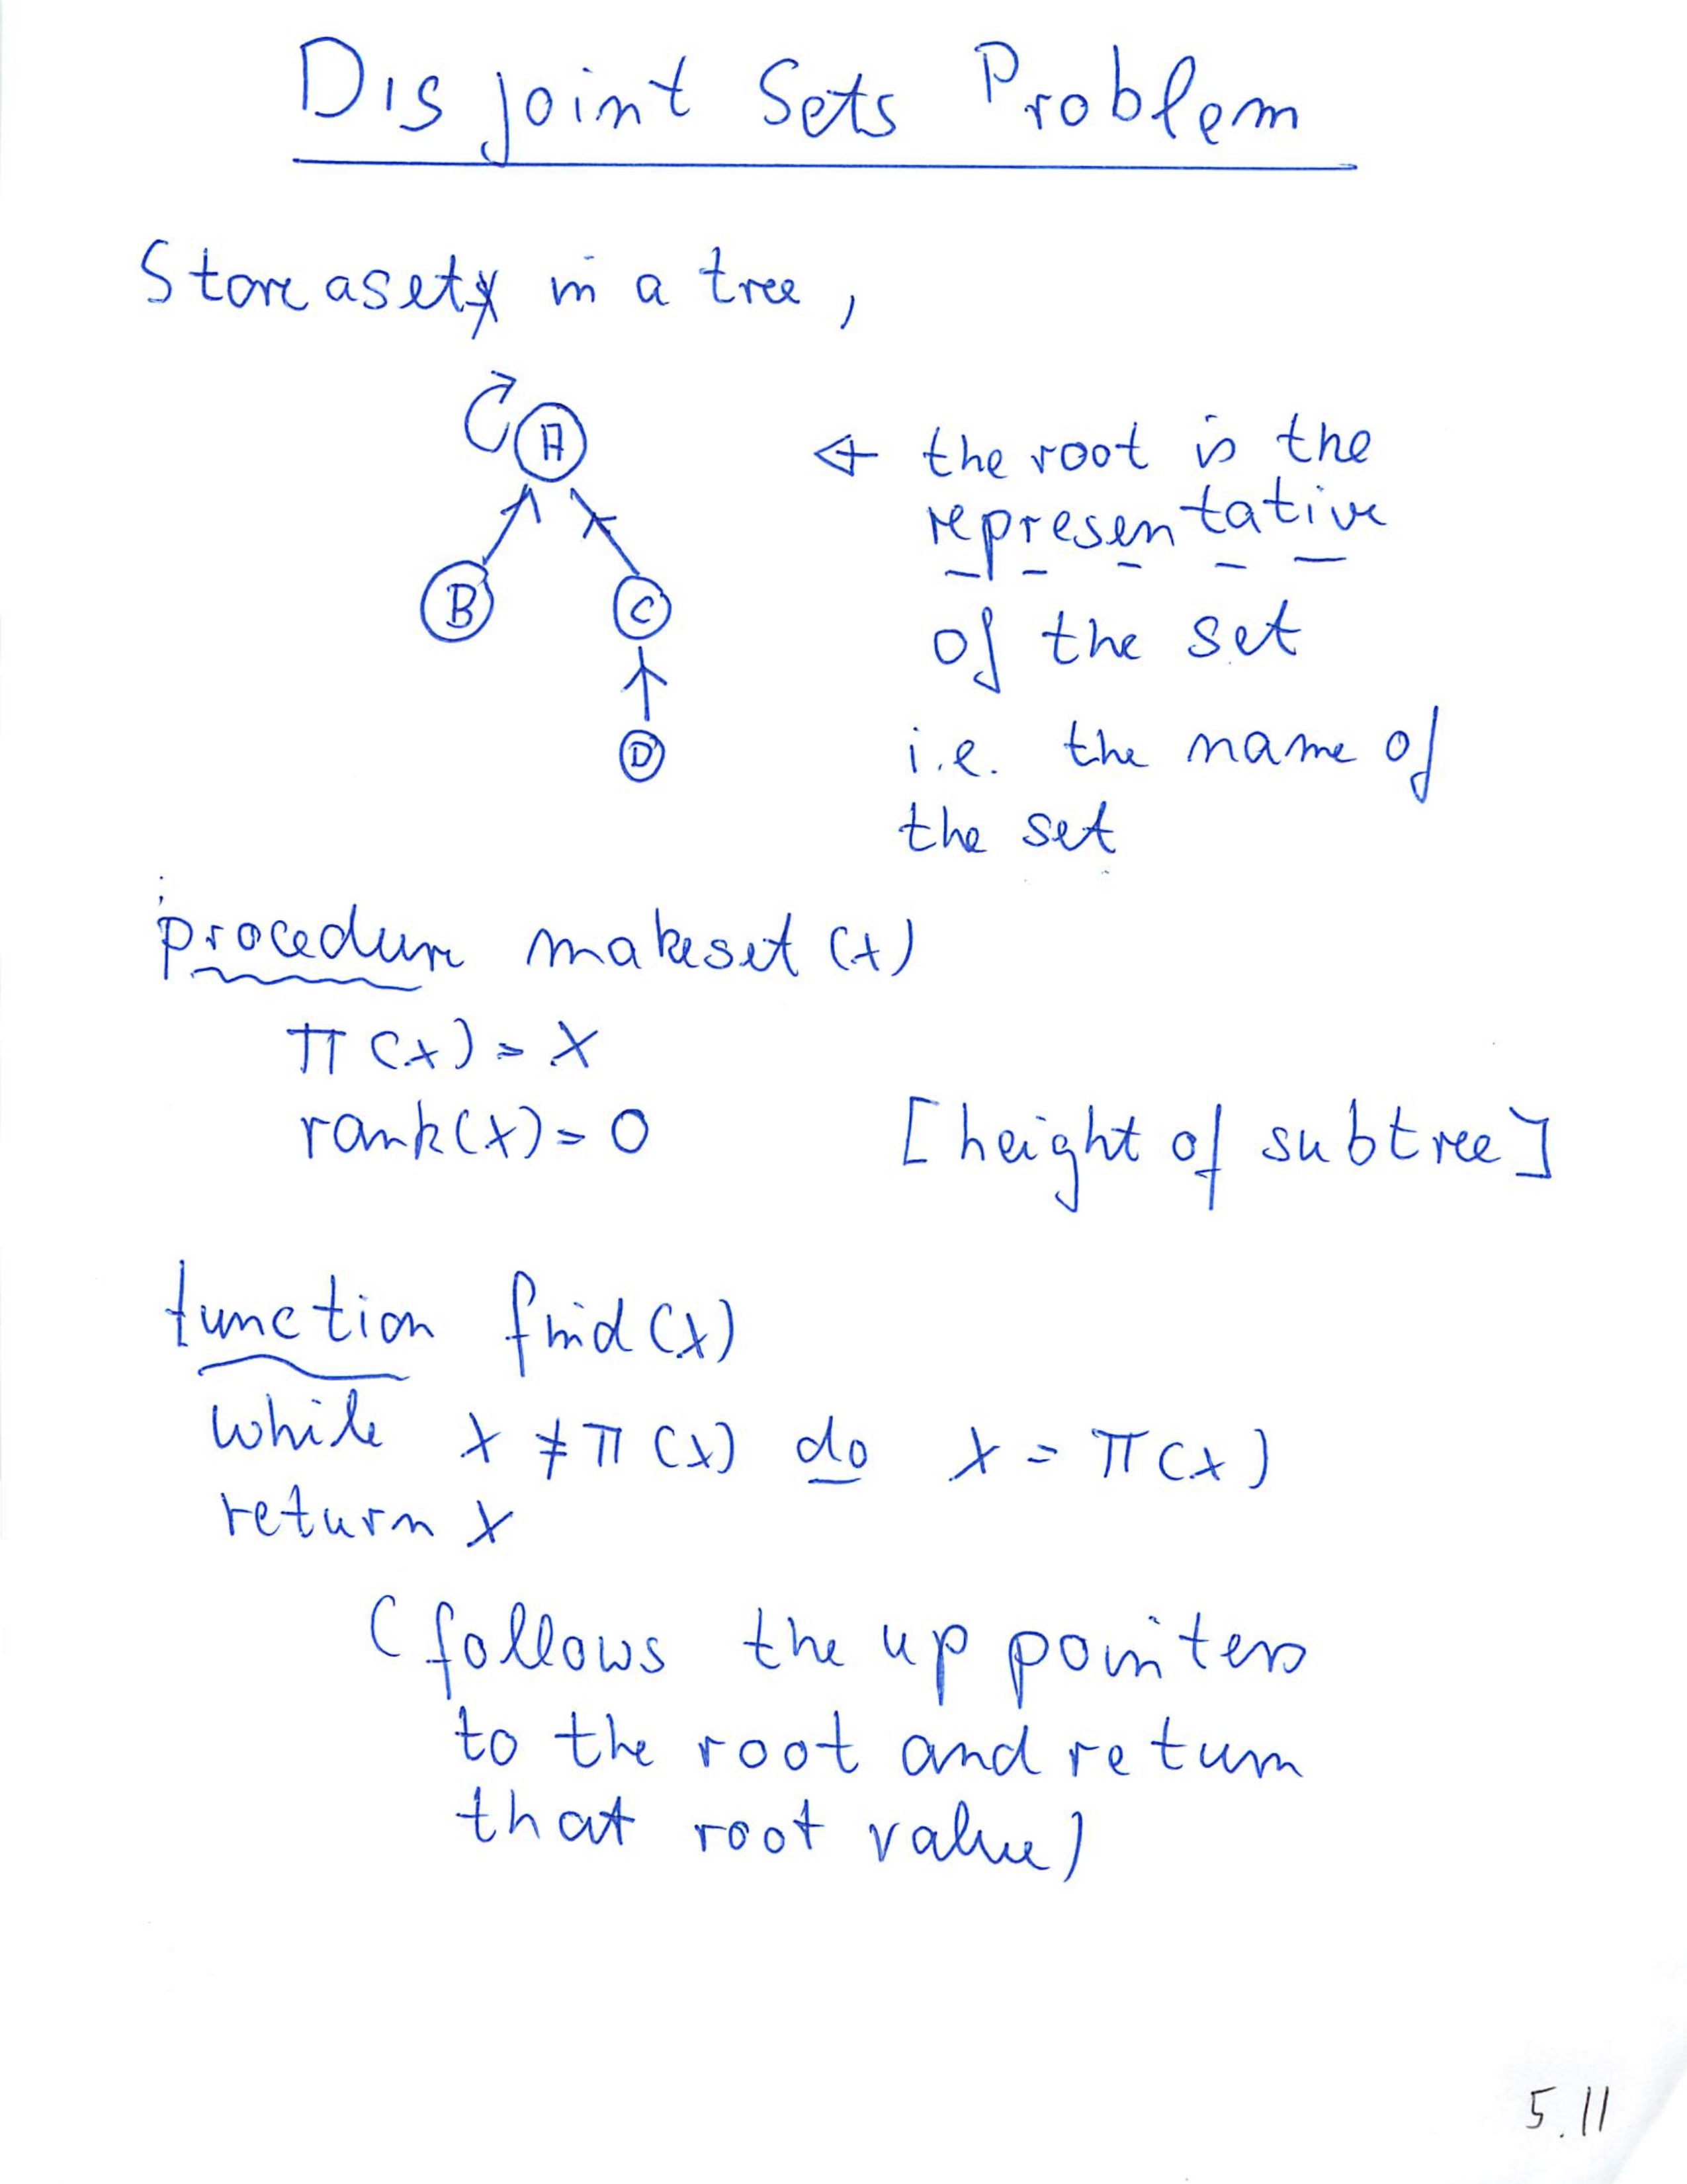 Disjoint Sets Problem
Store a set in a tree,
A
← the root is the
representative
B
C
of the set
D
i.e. the name of
the set
procedure makeset (x)
π(x) = x
rank(x) = 0 [height of subtree]
function find(x)
while x ≠ π(x) do x = π(x)
return x
(follows the up pointers
to the root and return
that root value)
5.11